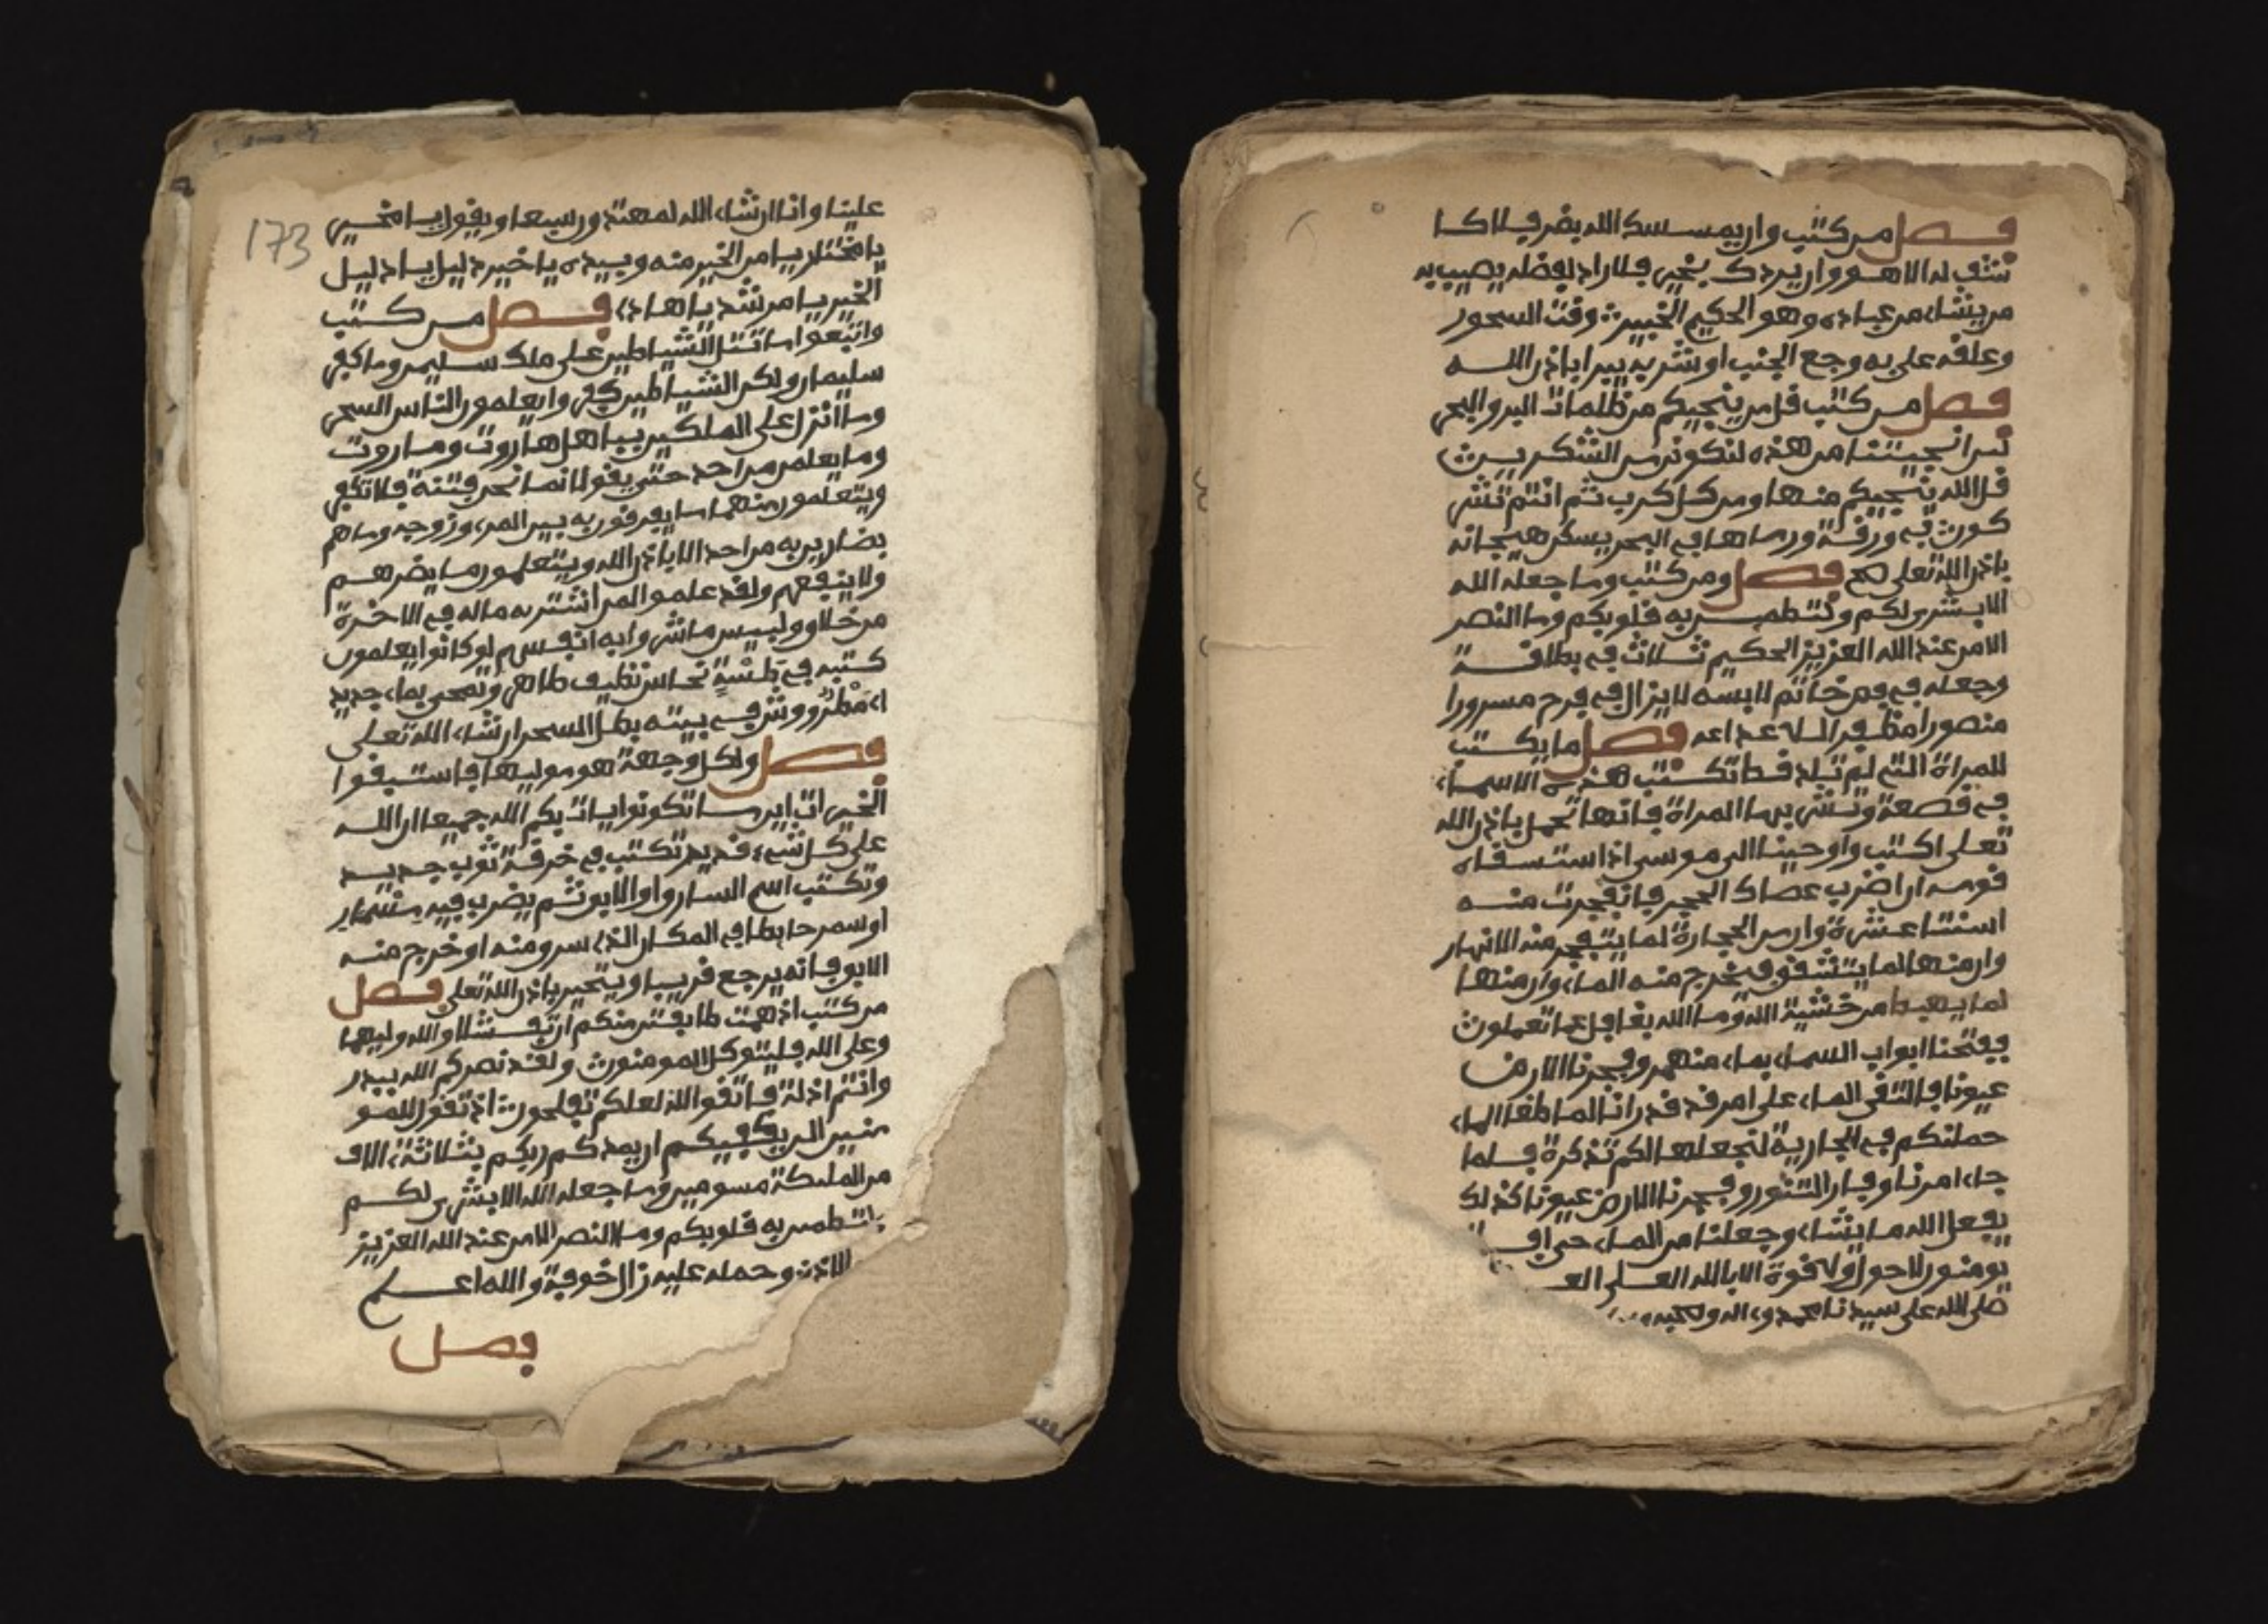 173
علينا وانا ان شاء الله لمهتدون سبعا ويقول يا مخبر
يا مختار يا من الخير منه وبيده يا خير دليل يا دليل
الخير يا مرشد يا هادي فصل من كتب
واتبعوا ما تتلوا الشياطين على ملك سليمن وما كفر
سليمان ولكن الشياطين كفروا يعلمون الناس السحر
وما انزل على الملكين ببابل هاروت وماروت
وما يعلمن من احد حتى يقولا انما نحن فتنة فلا تكفر
ويتعلمون منهما ما يفرقون به بين المرء وزوجه وما هم
بضارين به من احد الا باذن الله ويتعلمون ما يضرهم
ولا ينفعهم ولقد علموا لمن اشتريه ماله في الاخرة
من خلاو ولبيس ما شروا به انفسهم لو كانوا يعلمون
كتبه في طسة نحاس نظيف طاهر وتمحى بماء جديد
او مطر ورش في بيته بطل السحر ان شاء الله تعلى
فصل ولكل وجهة هو موليها فاستبقوا
الخيرات اين ما تكونوا يات بكم الله جميعا ان الله
على كل شيء قدير تكتب في خرقة ثوب جديد
وتكتب اسم السارو او الابو ثم يضرب فيه مسمار
او سمر حايط في المكان الذي سرو منه او خرج منه
الابو فانه يرجع قريبا ويتحير باذن الله تعلى فصل
من كتب اذ همت طايفتن منكم ان تفشلا والله وليهما
وعلى الله فليتوكل المومنون ولقد نصركم الله ببدر
وانتم اذلة فاتقوا الله لعلكم تفلحون اذ تقول للمو
منين الن يكفيكم ان يمدكم ربكم بثلاثة الاف
من الملئكة مسومين وما جعله الله الا بشرى لكم
ولتطمين به قلوبكم وما النصر الا من عند الله العزيز
الاذن وحمله عليه زال خوفه والله اعلم
فصل
فصل من كتب وان يمسسك الله بضر فلا كا
شف له الا هو وان يردك بخير فلا راد لفضله يصيب به
من يشاء من عباده وهو الحكيم الخبير وقت السحور
وعلقه على به وجع الجنب او شربه يبرا باذن الله
فصل من كتب قل من ينجيكم من ظلمات البر والبحر
لين انجيتنا من هذه لنكونن من الشكرين
قل الله ينجيكم منها ومن كل كرب ثم انتم تشر
كون في ورقة ورماها في البحر يسكن هيجانه
باذن الله تعلى فصل ومن كتب وما جعله الله
الا بشرى لكم ولتطمين به قلوبكم وما النصر
الا من عند الله العزيز الحكيم ثلاث في بطاقة
وجعله في فص خاتم لابسه لا يزال في فرح مسرورا
منصورا مظفر فصل ما يكتب
للمراة التي لم تلد قط تكتب هذه الاسماء
في قصعة وتشربها المراة فانها تحمل باذن الله
تعلى اكتب واوحينا الى موسى اذ استسقاه
قومه ان اضرب بعصاك الحجر فانفجرت منه
اثنتا عشرة وان من الحجارة لما يتفجر منه الانهار
وان منها لما يتشقو فيخرج منه الماء وان منها
لما يهبط من خشية الله وما الله بغافل عما تعملون
ففتحنا ابواب السماء بماء منهمر وفجرنا الارض
عيونا فالتقى الماء على امر قد قدر انا لما طغا الماء
حملنكم في الجارية لنجعلها لكم تذكرة فلما
جاء امرنا وفار التنور وفجرنا الارض عيونا كذلك
يفعل الله ما يشاء وجعلنا من الماء حي افـ
يومنون لا حول ولا قوة الا بالله العلي العـ
صلى الله على سيدنا محمد واله وصحبه